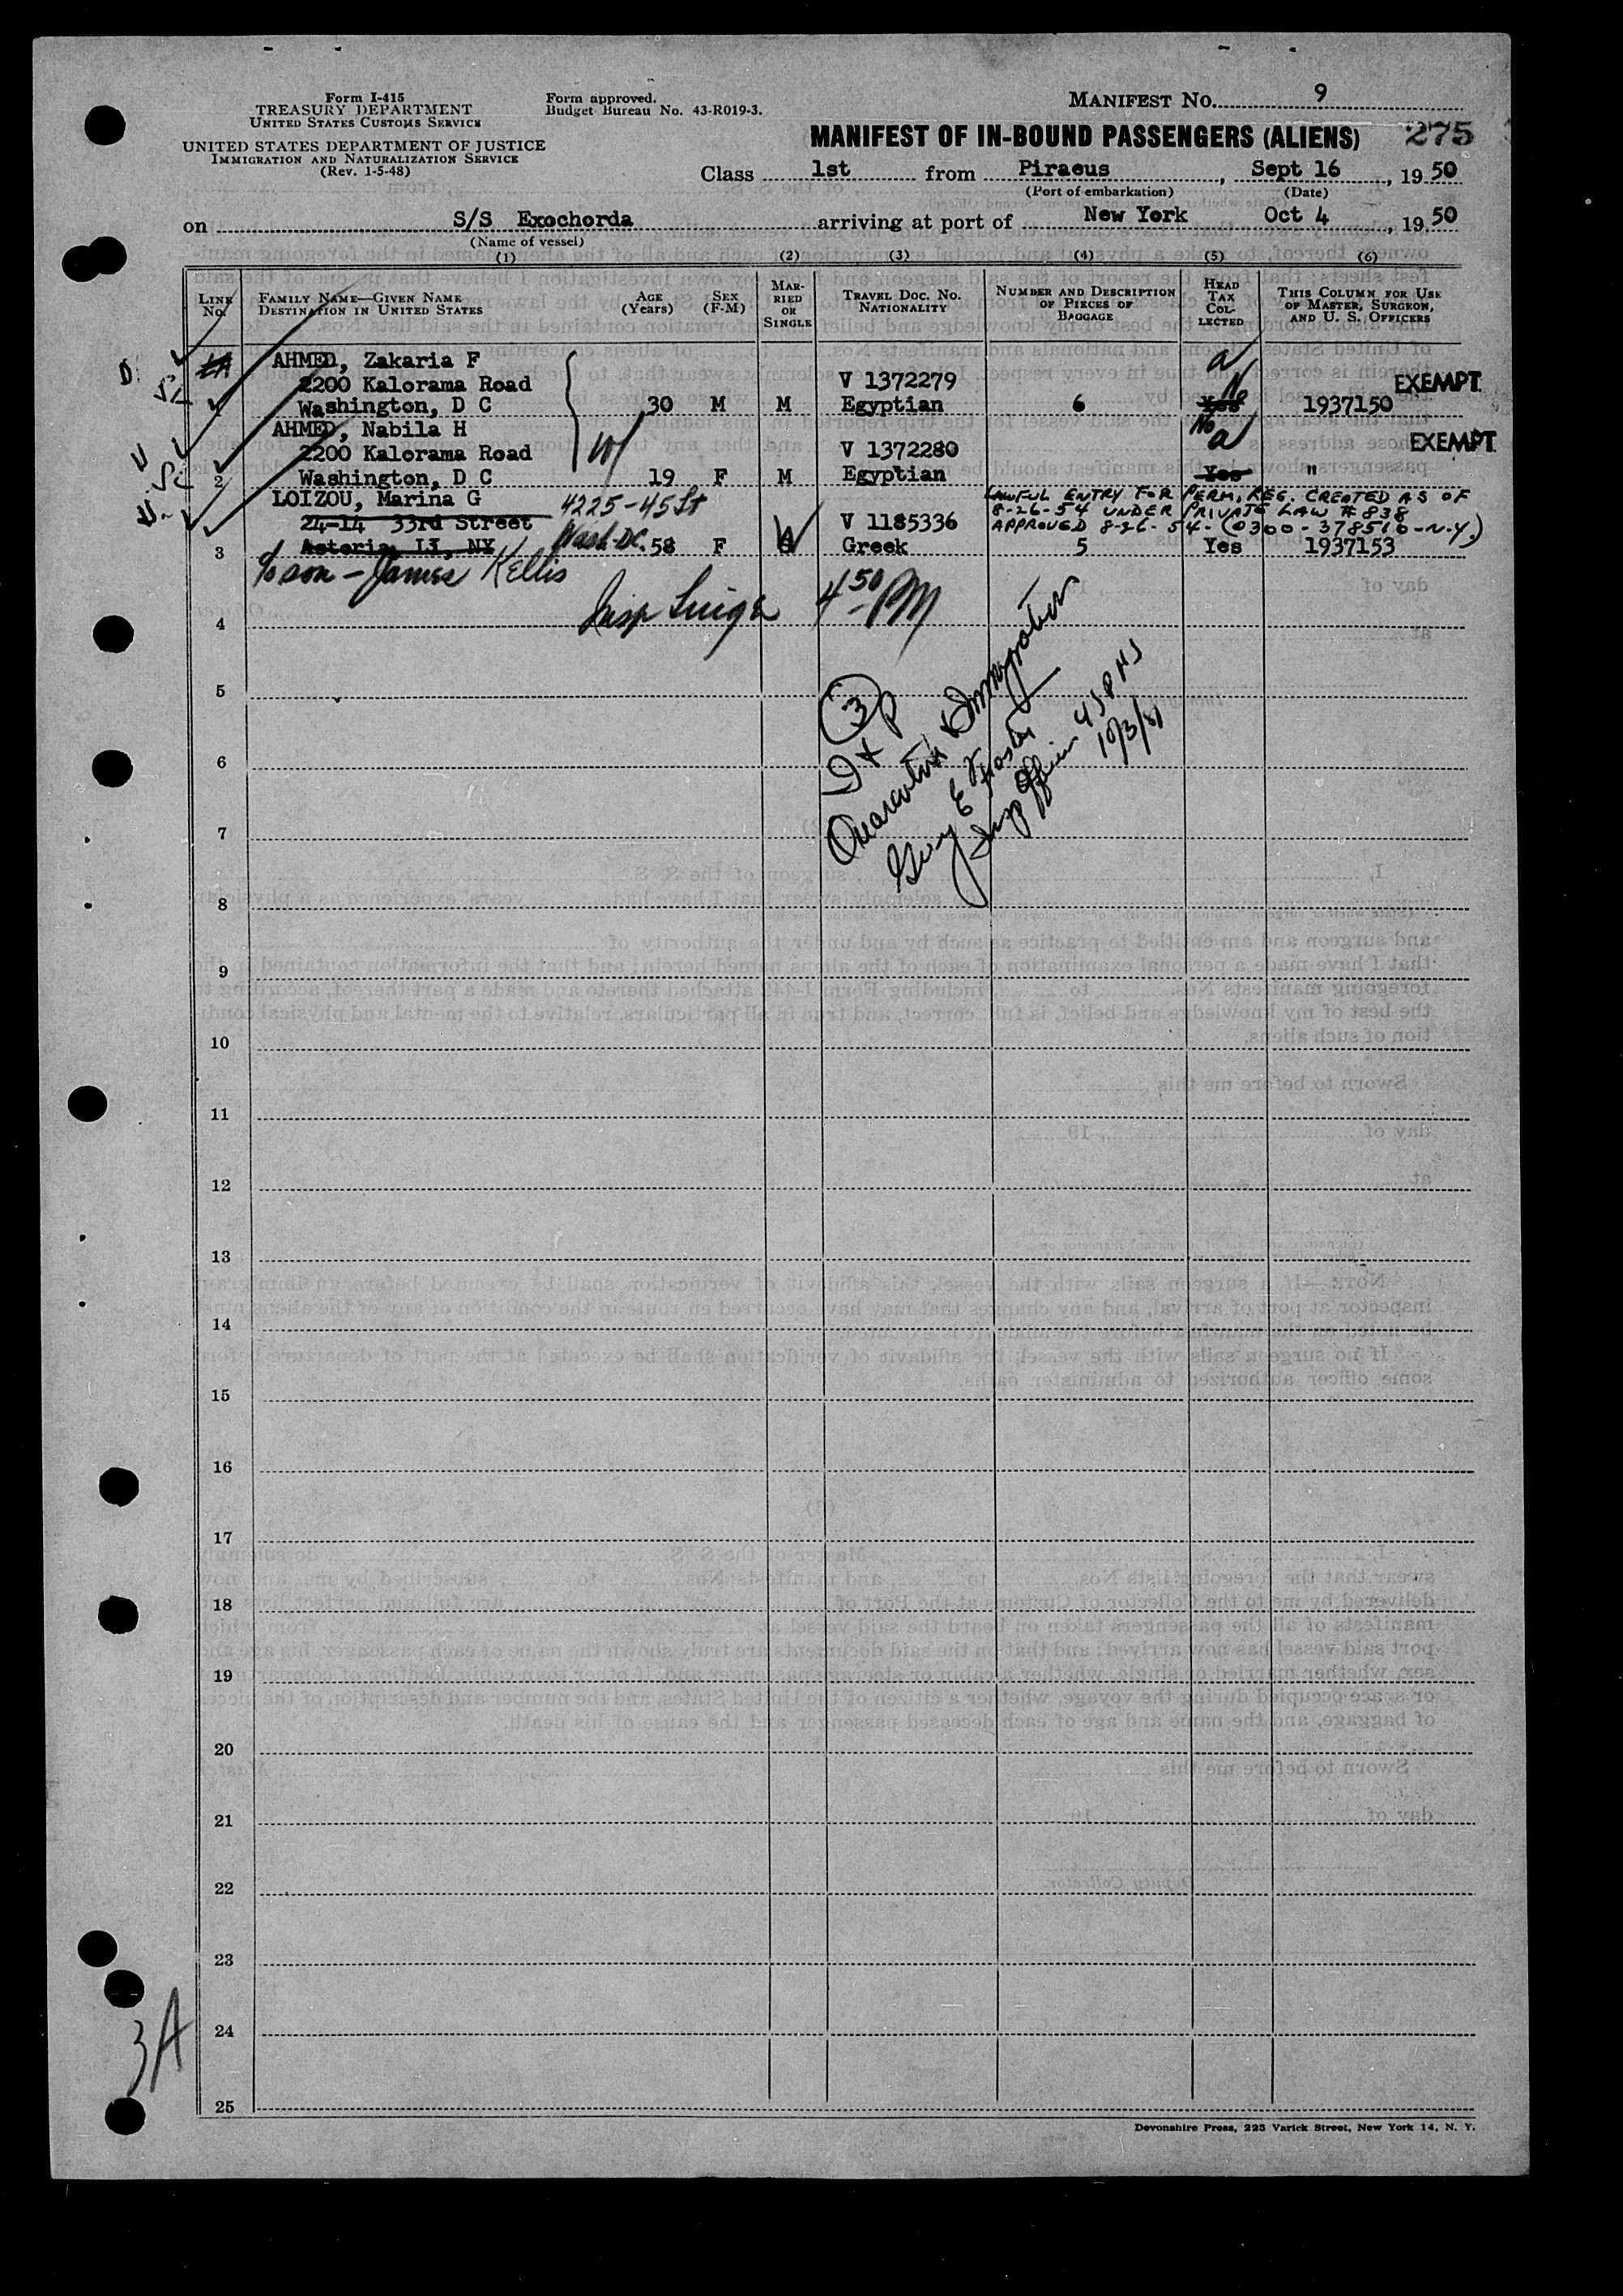 Form I-415
TREASURY DEPARTMENT
UNITED STATES CUSTOMS SERVICE
UNITED STATES DEPARTMENT OF JUSTICE
IMMIGRATION AND NATURALIZATION SERVICE
(Rev. 1-5-48)
Form approved.
Budget Bureau No. 43-R019-3.
MANIFEST NO. 9
MANIFEST OF IN-BOUND PASSENGERS (ALIENS) 275
Class 1st from Piraeus, Sept 16, 1950
(Port of embarkation) (Date)
on S/S Exochorda arriving at port of New York Oct 4, 1950
(Name of vessel)
(1) (2) (3) (4) (5) (6)
LINE No. FAMILY NAME—GIVEN NAME DESTINATION IN UNITED STATES AGE (Years) SEX (F-M) MARRIED OR SINGLE TRAVEL DOC. NO. NATIONALITY NUMBER AND DESCRIPTION OF PIECES OF BAGGAGE HEAD TAX COLLECTED THIS COLUMN FOR USE OF MASTER, SURGEON, AND U. S. OFFICERS
AHMED, Zakaria F
2200 Kalorama Road V 1372279 No EXEMPT
1 Washington, D C 30 M M Egyptian 6 Yes 1937150
AHMED, Nabila H No
2200 Kalorama Road V 1372280 EXEMPT
2 Washington, D C 19 F M Egyptian Yes "
LOIZOU, Marina G 4225-45 St LAWFUL ENTRY FOR PERM. REG. CREATED AS OF
24-14 33rd Street V 1185336 8-26-54 UNDER PRIVATE LAW #838
Wash DC. APPROVED 8-26-54- (0300-378510-N.Y.)
3 Astoria, LI, NY 58 F W Greek 5 Yes 1937153
c/o son - James Kellis
Insp 4 50 PM
4
5
3
6
Quarantine & Immigration
7
8
9
10
11
12
13
14
15
16
17
18
19
20
21
22
23
24
3A
25
Devonshire Press, 225 Varick Street, New York 14, N. Y.